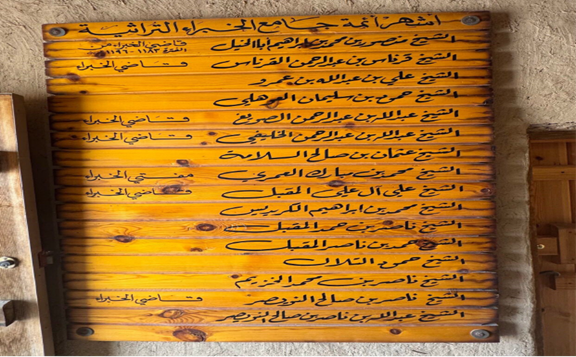 أشهر أئمة جامع الخبراء التراثية
الشيخ منصور بن محمد بن إبراهيم أبا الخيل قاضي الخبراء من
الفترة ١١٨٣-١١٩٦هـ
الشيخ قرناس بن عبدالرحمن القرناس قاضي الخبراء
الشيخ علي بن عبدالله بن عمرو
الشيخ حمد بن سليمان
الشيخ عبدالله بن عبدالرحمن قاضي الخبراء
الشيخ عبدالله بن عبدالرحمن الخليفي قاضي الخبراء
الشيخ عثمان بن صالح السلامة
الشيخ محمد بن مبارك العمري مفتي الخبراء
الشيخ علي آل علي المقبل قاضي الخبراء
الشيخ محمد بن ابراهيم الكريديس
الشيخ ناصر بن حمد المقبل
الشيخ حمد بن ناصر المقبل
الشيخ حمود التلال
الشيخ ناصر بن محمد الخزيم
الشيخ ناصر بن صالح النويصر قاضي الخبراء
الشيخ عبدالله بن ناصر بن صالح النويصر